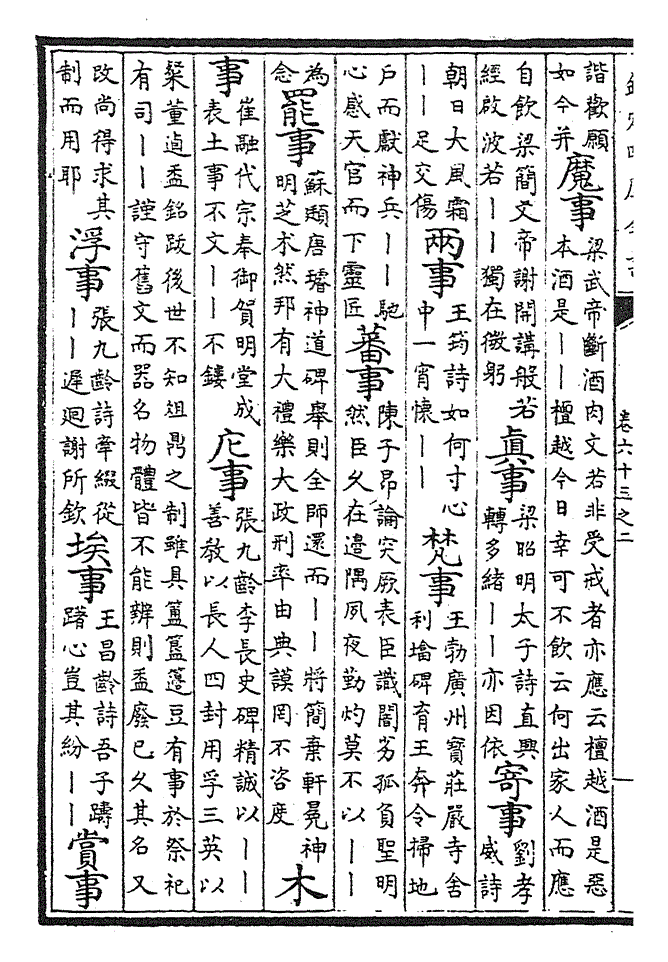 卷六十三之二
諧歡願
如今并
魔事
梁武帝斷酒肉文若非受戒者亦應云檀越酒是惡
本酒是——檀越今日幸可不飲云何出家人而應
自飲梁簡文帝謝開講般若
經啟波若——獨在微躬
真事
梁昭明太子詩直興
轉多緒——亦因依
寄事
劉孝
威詩
朝日大風霜
——足交傷
兩事
王筠詩如何寸心
中一宵懷——
梵事
王勃廣州寶莊嚴寺舍
利墖碑育王奔令掃地
户而獻神兵——馳
心感天官而下靈匠
蕃事
陳子昂論突厥表臣識闇劣孤負聖明
然臣久在邊隅夙夜勤灼莫不以——
為
念
罷事
蘇頲唐璿神道碑舉則全師還而——將簡棄軒冕神
明芝朮然邦有大禮樂大政刑率由典謨罔不咨度
木
事
崔融代宗奉御賀明堂成
表土事不文——不鏤
庀事
張九齡李長史碑精誠以——
善教以長人四封用孚三英以
粲董逌盉銘跋後世不知俎鼎之制雖具簠簋籩豆有事於祭祀
有司——謹守舊文而器名物體皆不能辨則盉廢已久其名又
改尚得求其
制而用耶
浮事
張九齡詩牽綴從
——遲迴謝所欽
埃事
王昌齡詩吾子躊
躇心豈其紛——
賞事